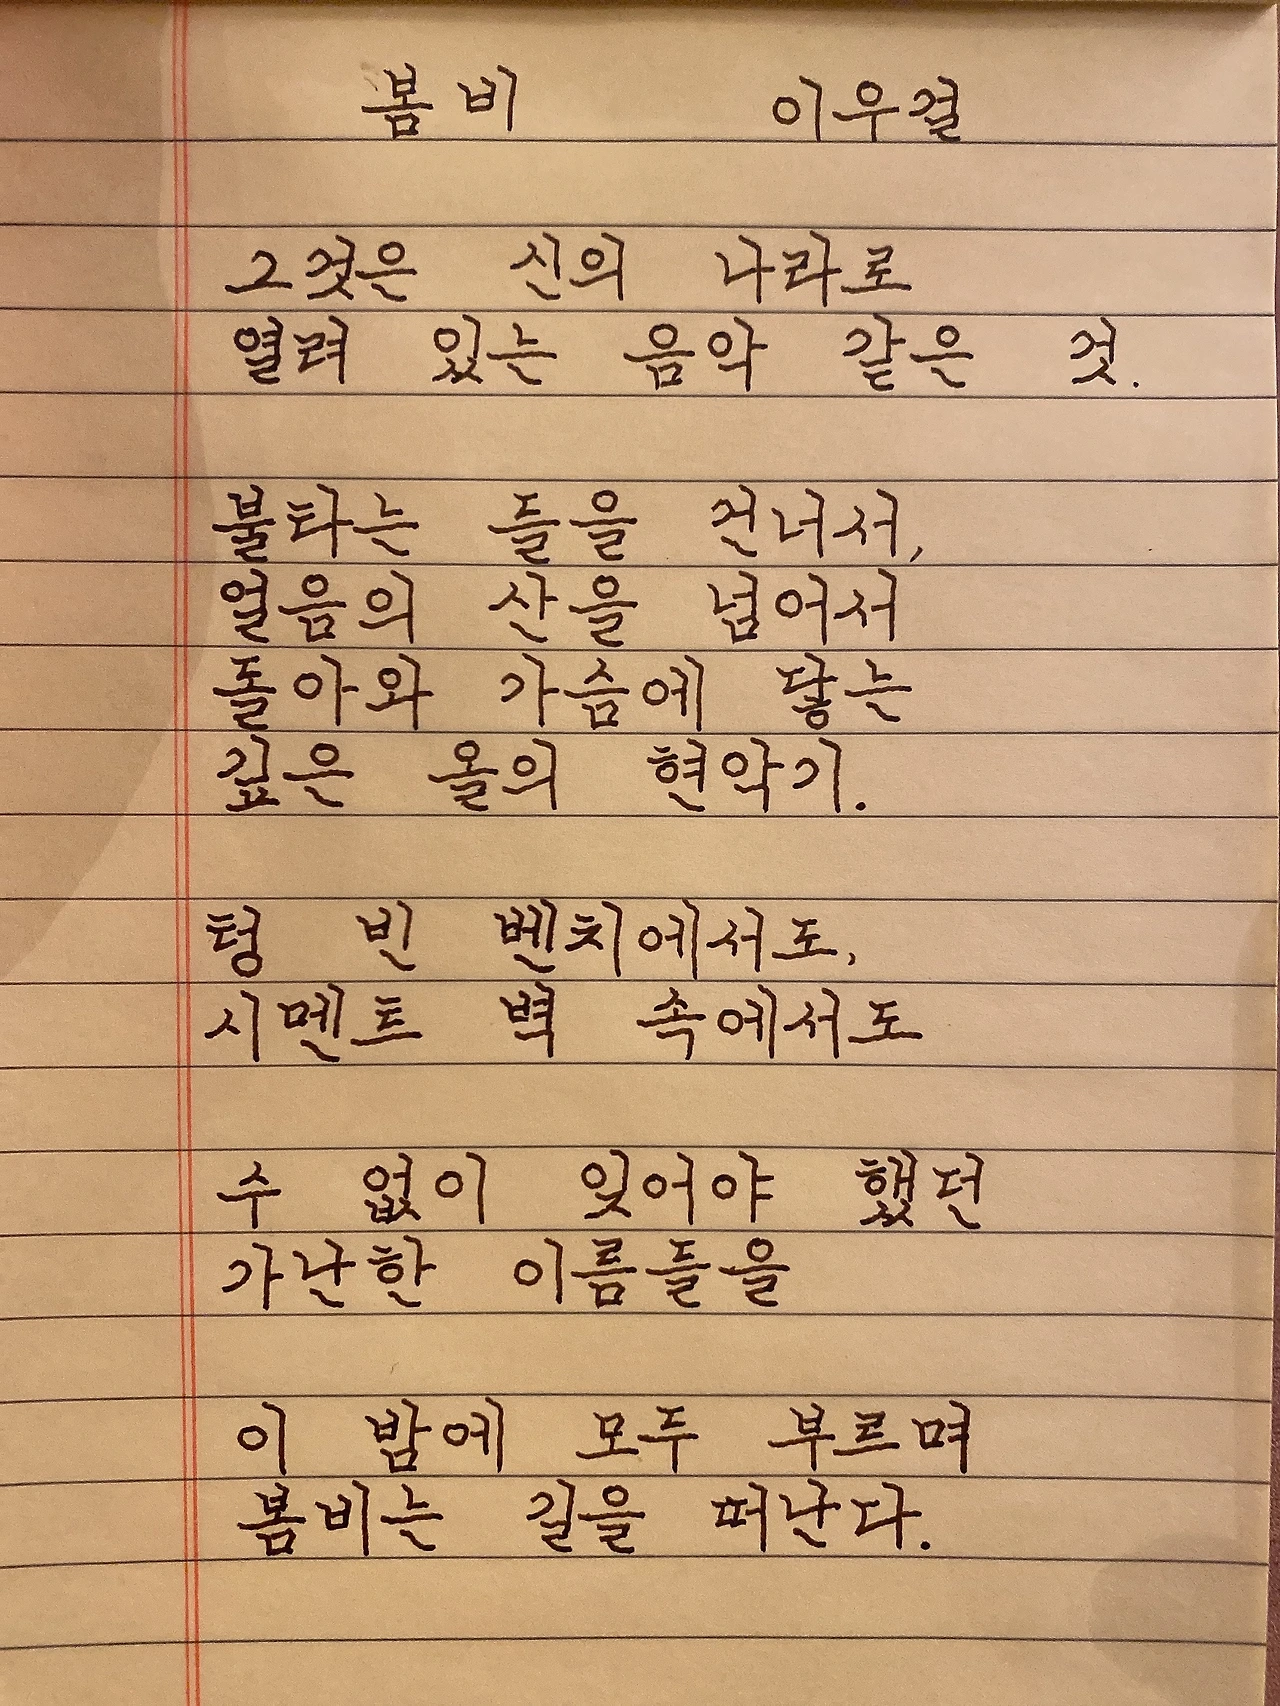 봄비 이우걸
그것은 신의 나라로
열려 있는 음악 같은 것.
불타는 들을 건너서,
얼음의 산을 넘어서
돌아와 가슴에 닿는
깊은 올의 현악기.
텅 빈 벤치에서도,
시멘트 벽 속에서도
수 없이 잊어야 했던
가난한 이름들을
이 밤에 모두 부르며
봄비는 길을 떠난다.